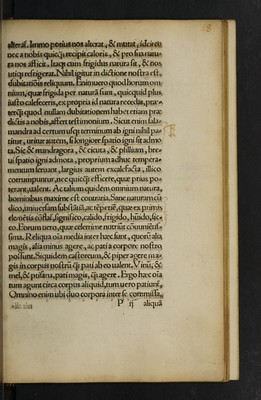 alterat. Immo potius nos alterat, & mutat, idcirco
nec a nobis quicq̃ recipit caloris, & pro sua natu
ra nos afficit. Itaq; cum frigidus natura sit, & nos
utiq; refrigerat. Nihil igitur in dictione nostra est,
dubitatiõis reliquum. Enimuero quod horum om
nium, quæ frigida per naturã sunt, quicquid plus
iusto calefeceris, ex propria id natura recedat, præ
terq̃ quod nullam dubitationem habet etiam præ
dictis a nobis, affert testimonium. Sicut enim sala
mandra ad certum usq; terminum ab igni nihil pa
titur, uritur autem, si longiore spatio igni sit admo
ta, Sic & mandragora, & cicuta, & psillium, bre-
ui spatio igni admota, proprium adhuc tempera-
mentum seruant, largius autem excalefacta, illico
corrumpuntur, nec quicq̃ efficere, quæ prius po-
terant, ualent. Ac talium quidem omnium natura,
hominibus maxime est contraria. Sane naturam cũ
dico, uniuersam substãtiã, ac tẽperiẽ, quæ ex primis
elemẽtis cõflat, significo, calido, frigido, hũido, sic-
co. Eorum uero, quæ celerrime nutriũt cõuuniẽtis-
sima. Reliqua oĩa media inter hæc sunt, quorũ alia
magis, alia minus agere, ac pati a corpore nostro
possunt. Siquidem castoreum, & piper agere ma-
gis in corpus nostrũ q̃ pati ab eo ualent. Vinũ, &
mel, & ptisana, pati magis, q̃ agere. Ergo hæc oĩa
tum agunt circa corpus aliquid, tum uero patiunt̃.
Omnino enim ubi duo corpora inter se commissa,
P ij aliquã